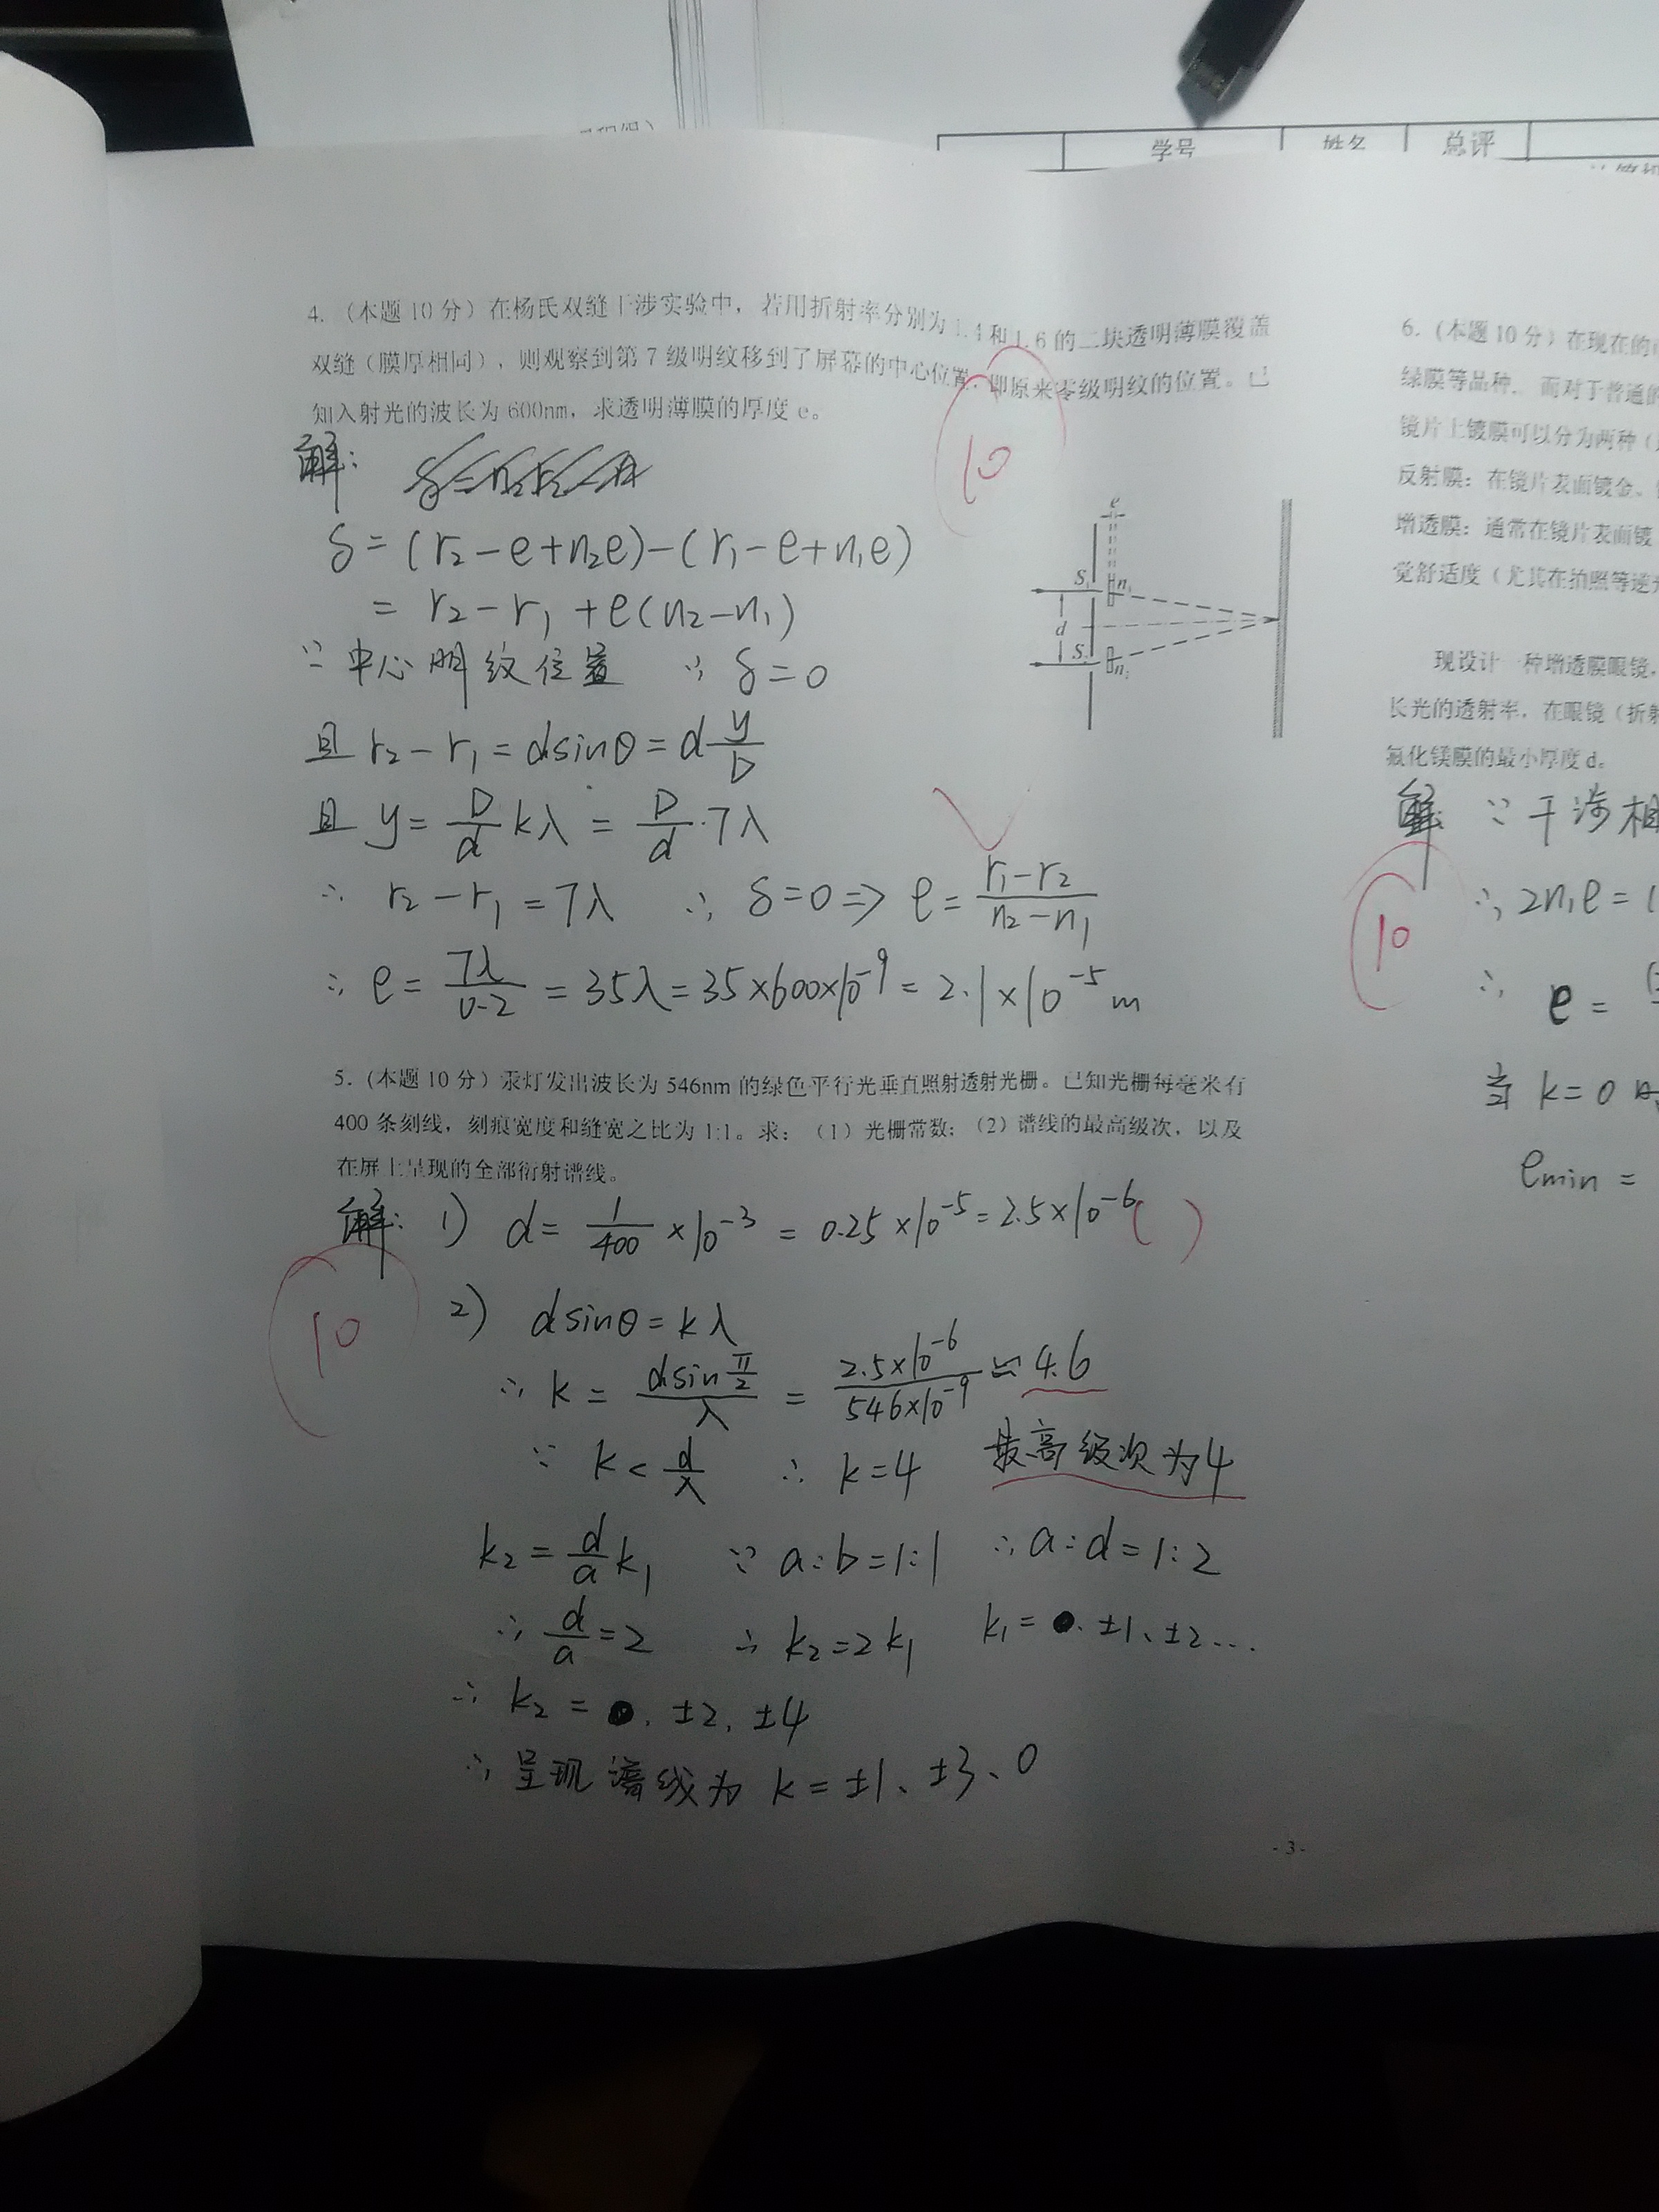 学号 姓名 总评
4. （本题 10 分）在杨氏双缝干涉实验中，若用折射率分别为 1.4 和 1.6 的二块透明薄膜覆盖
双缝（膜厚相同），则观察到第 7 级明纹移到了屏幕的中心位置，即原来零级明纹的位置。已
知入射光的波长为 600nm，求透明薄膜的厚度 e。
10
解：
δ = (r₂ - e + n₂e) - (r₁ - e + n₁e)
= r₂ - r₁ + e(n₂ - n₁)
∵ 中心明纹位置 ∵ δ = 0
且 r₂ - r₁ = dsinθ = d y/D
且 y = D/d kλ = D/d · 7λ
∴ r₂ - r₁ = 7λ ∴ δ = 0 => e = (r₁ - r₂)/(n₂ - n₁)
∴ e = 7λ/0.2 = 35λ = 35×600×10⁻⁹ = 2.1×10⁻⁵ m
e
S₁ n₁
d
S n₂
5. （本题 10 分）汞灯发出波长为 546nm 的绿色平行光垂直照射透射光栅。已知光栅每毫米有
400 条刻线，刻痕宽度和缝宽之比为 1:1。求：（1）光栅常数；（2）谱线的最高级次，以及
在屏上呈现的全部衍射谱线。
解: 1) d = 1/400 × 10⁻³ = 0.25×10⁻⁵ = 2.5×10⁻⁶ ( )
10
2) dsinθ = kλ
∴ k = dsin(π/2)/λ = 2.5×10⁻⁶/546×10⁻⁹ ≈ 4.6
∵ k < d/λ ∴ k = 4 最高级次为4
k₂ = d/a k₁ ∵ a:b = 1:1 ∴ a:d = 1:2
∴ d/a = 2 ∴ k₂ = 2k₁ k₁ = ±1、±2…
∴ k₂ = ±2, ±4
∴ 呈现谱线为 k = ±1、±3、0
- 3 -
6. （本题 10 分）在现在的
绿膜等品种。而对于普通的
镜片上镀膜可以分为两种（
反射膜：在镜片表面镀金、
增透膜：通常在镜片表面镀
觉舒适度（尤其在拍照等逆光
现设计一种增透膜眼镜，
长光的透射率，在眼镜（折射
氟化镁膜的最小厚度 d。
解 ∵ 干涉相
10
∴ 2n₁e = (
∴ e =
当 k = 0
emin =